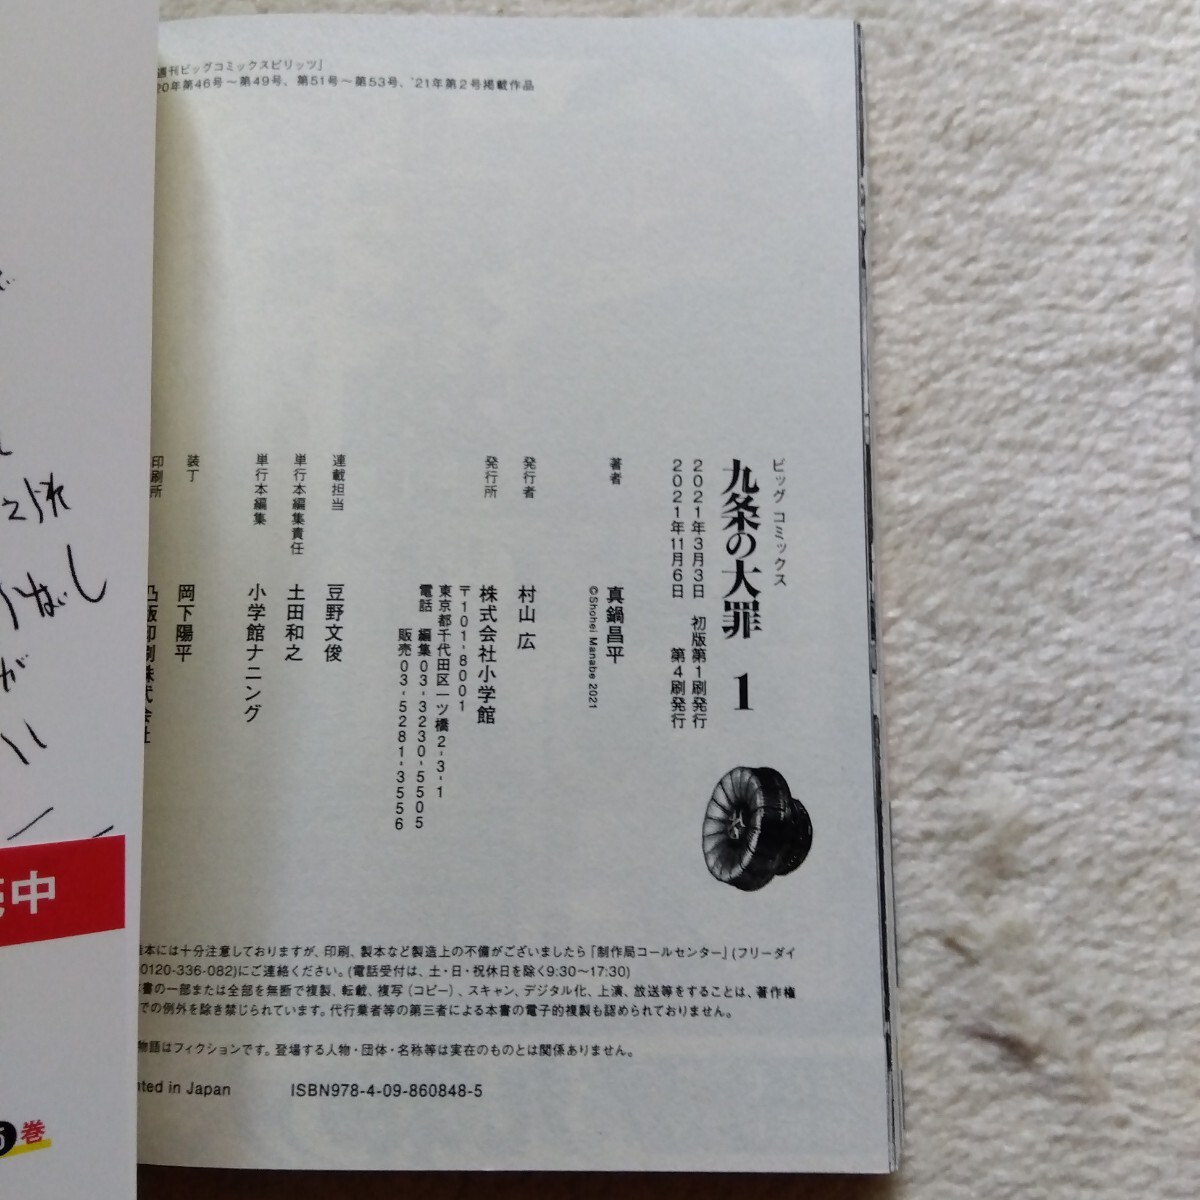 週刊ビッグコミックスピリッツ」
20年第46号〜第49号、第51号〜第53号、'21年第2号掲載作品
ビッグ コミックス
九条の大罪 1
2021年3月3日 初版第1刷発行
2021年11月6日 第4刷発行
著者 真鍋昌平
©Shohei Manabe 2021
発行者 村山 広
発行所 株式会社小学館
〒101-8001
東京都千代田区一ツ橋2-3-1
電話 編集03-3230-5505
販売03-5281-3556
連載担当 豆野文俊
単行本編集責任 土田和之
単行本編集 小学館ナニング
装丁 岡下陽平
印刷所 凸版印刷株式会社
本には十分注意しておりますが、印刷、製本など製造上の不備がございましたら「制作局コールセンター」(フリーダイ
0120-336-082)にご連絡ください。(電話受付は、土・日・祝休日を除く9:30〜17:30)
書の一部または全部を無断で複製、転載、複写(コピー)、スキャン、デジタル化、上演、放送等をすることは、著作権
での例外を除き禁じられています。代行業者等の第三者による本書の電子的複製も認められておりません。
物語はフィクションです。登場する人物・団体・名称等は実在のものとは関係ありません。
ted in Japan ISBN978-4-09-860848-5
中
巻